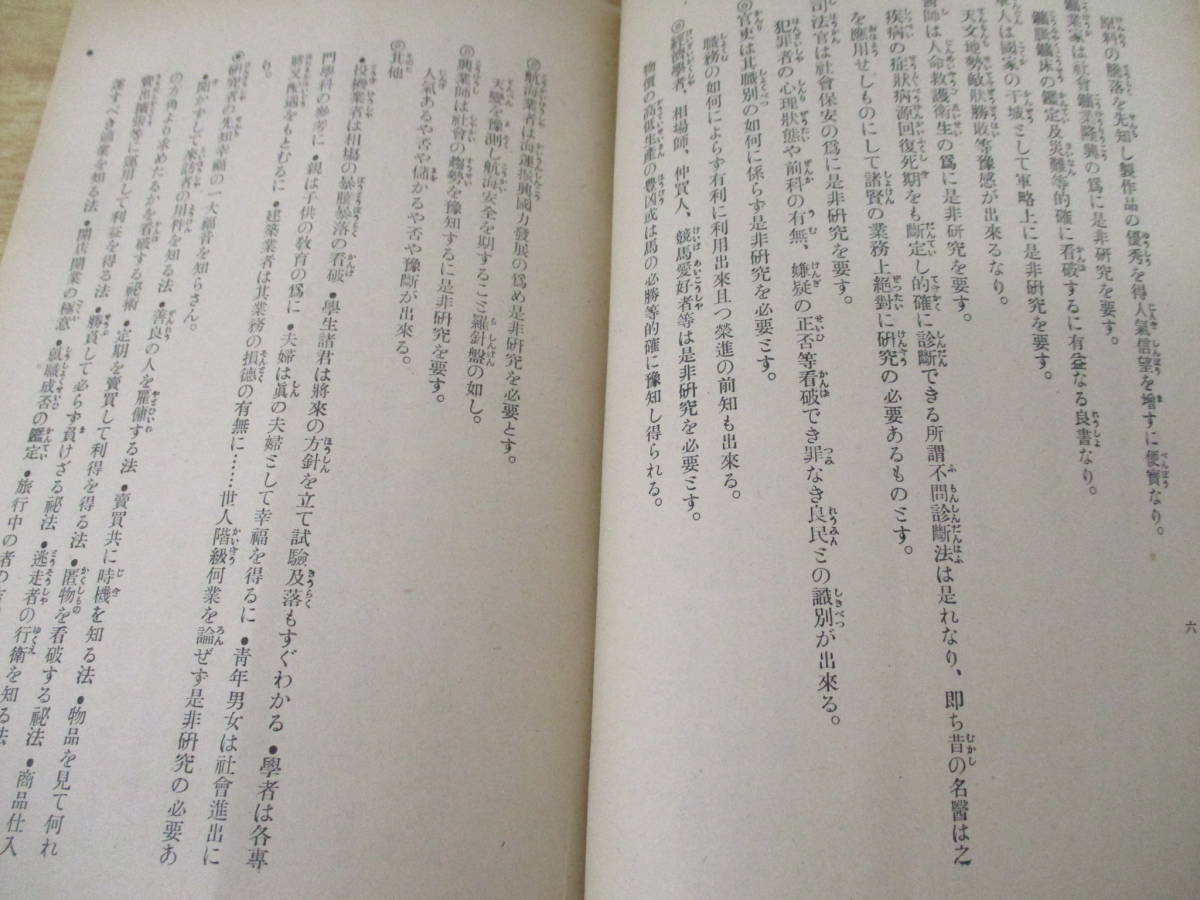 原料の騰落を先知し製作品の優秀を得人氣信望を增すに便寳なり。
鑛業家は社會鑛業隆興の爲に是非硏究を要す。
鑛脈鑛床の鑑定及災難等的確に看破するに有益なる良書なり。
軍人は國家の干城として軍略上に是非硏究を要す。
天文地勢敵狀勝敗等豫感が出來るなり。
醫師は人命救護衛生の爲に是非硏究を要す。
疾病の症狀病源回復死期をも斷定し的確に診斷できる所謂不問診斷法は是れなり、卽ち昔の名醫は之
を應用せしものにして諸賢の業務上絕對に硏究の必要あるものとす。
司法官は社會保安の爲に是非硏究を要す。
犯罪者の心理狀態や前科の有無、嫌疑の正否等看破でき罪なき良民との識別が出來る。
◎官吏は其職別の如何に係らず是非硏究を必要とす。
職務の如何によらず有利に利用出來且つ榮進の前知も出來る。
◎經濟學者、相場師、仲買人、競馬愛好者等は是非硏究を必要とす。
物價の高低生產の豊凶或は馬の必勝等的確に豫知し得られる。
六
◎航海業者は海運振興國力發展の爲め是非硏究を必要とす。
天變を豫測し航海安全を期すること羅針盤の如し。
◎興業師は社會の趨勢を豫知するに是非硏究を要す。
人氣あるや否や儲かるや否や豫斷が出來る。
◎其他
●投機業者は相場の暴騰暴落の看破●學生諸君は將來の方針を立て試驗及落もすぐわかる●學者は各專
門學科の參考に●親は子供の敎育の爲に●夫婦は眞の夫婦として幸福を得るに●靑年男女は社會進出に
將又配適をもとむるに●建築業者は其業務の損德の有無に……世人階級何業を論ぜず是非硏究の必要あ
り。
●硏究者の先知幸福の一大福音を知らさん。
●聞かずして來訪者の用件を知る法●善良の人を雇傭する法●賣買共に時機を知る法●物品を見て何れ
の方角より求めたるかを看破する祕術●定期を賣買して利得を得る法●匿物を看破する祕法●商品仕入
賣出擴張等に運用して利益を得る法●勝負して必らず負けざる祕法●逃走者の行衛を知る法
運すべき適業を知る法●開店開業の極意●就職成否の鑑定●旅行中の者の